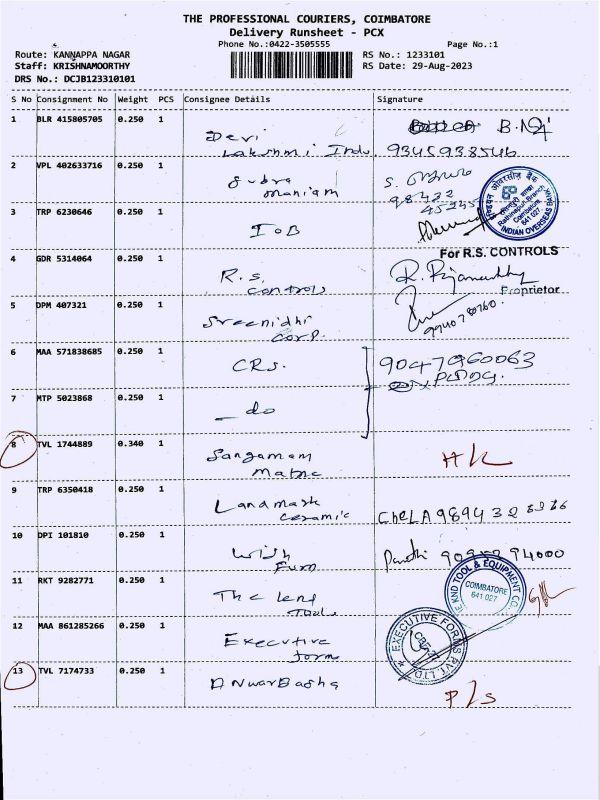 THE PROFESSIONAL COURIERS, COIMBATORE
Delivery Runsheet - PCX
Phone No.:0422-3505555 Page No.:1
Route: KANNAPPA NAGAR RS No.: 1233101
Staff: KRISHNAMOORTHY RS Date: 29-Aug-2023
DRS No.: DCJB123310101
S No Consignment No Weight PCS Consignee Details Signature
1 BLR 415805705 0.250 1
Devi
Lakshmi Indu. 9345938546
2 VPL 402633716 0.250 1
Subra
maniam
98432
3 TRP 6230646 0.250 1
IOB
INDIAN OVERSEAS BANK
Coimbatore
641 027
4 GDR 5314064 0.250 1 For R.S. CONTROLS
R.S.
Controls
Proprietor
5 DPM 407321 0.250 1
Sreenidhi
Corp. 9940780760.
6 MAA 571838685 0.250 1
CRS. 9047960063
7 MTP 5023868 0.250 1
do
8 TVL 1744889 0.340 1
Sangamam
Matric
9 TRP 6350418 0.250 1
Landmark
Ceramic
10 DPI 101810 0.250 1
Wish
Furn
11 RKT 9282771 0.250 1
KND TOOL & EQUIPMENT CO.
COIMBATORE
641 027
The lend
Tool
12 MAA 861285266 0.250 1
Executive
form
EXECUTIVE FORMS PVT. LTD
13 TVL 7174733 0.250 1
Anwar Basha